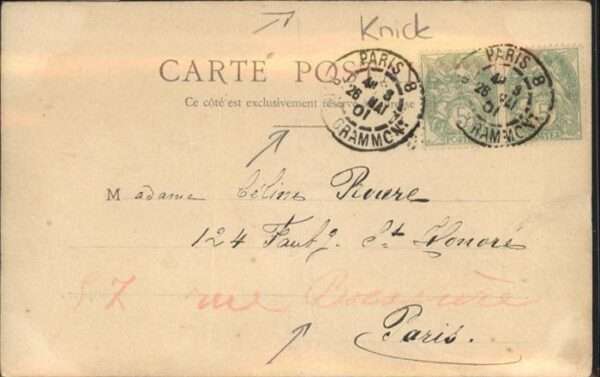 Knick
CARTE POS
Ce côté est exclusivement réservé
PARIS 8
4E 3
26 MAI
01
GRAMMONT
PARIS 8
4E 3
26 MAI
01
GRAMMONT
5c
5
POSTES
Madame Céline Roure
124 Faubg. St Honoré
57 rue
Paris.